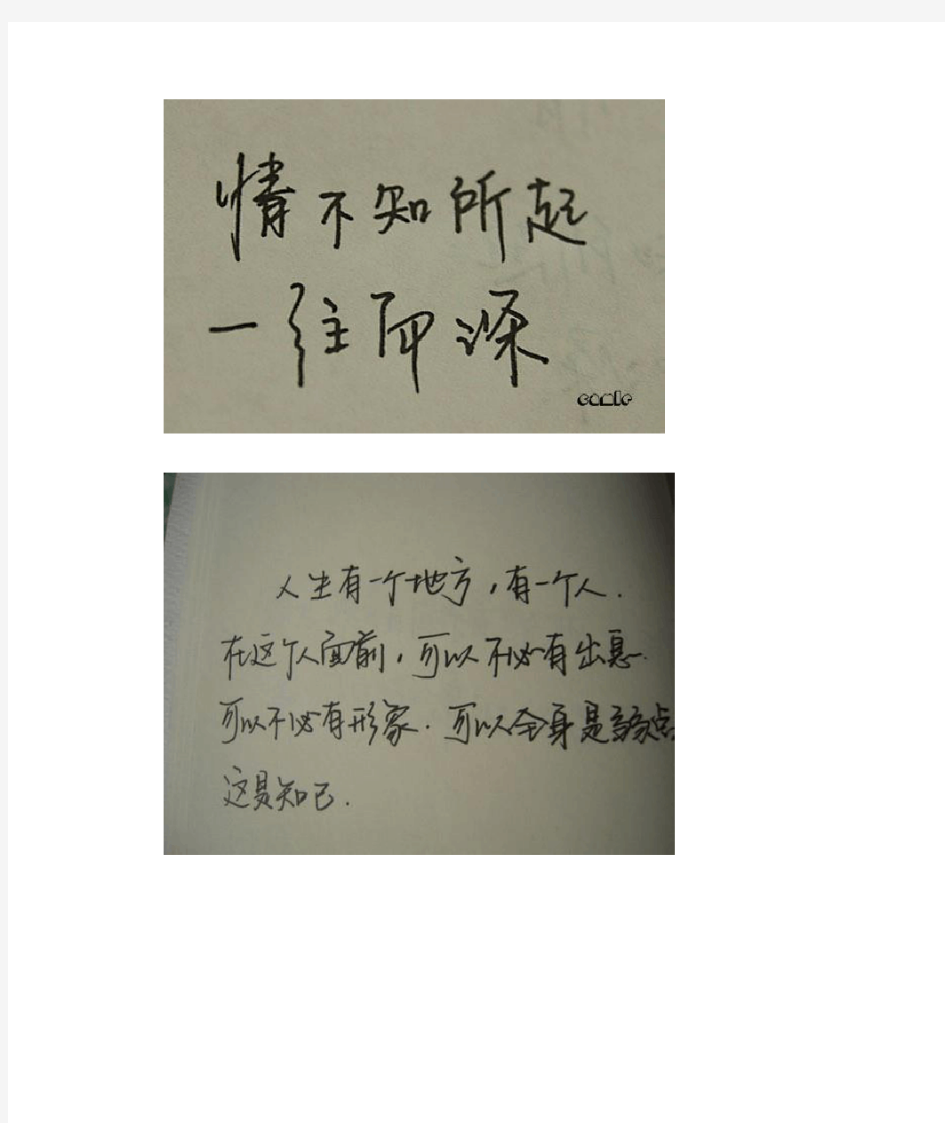 情不知所起
一往而深
comic
人生有一个地方,有一个人.
在这个人面前,可以不必有出息.
可以不必有形象.可以全身是弱点
这是知己.